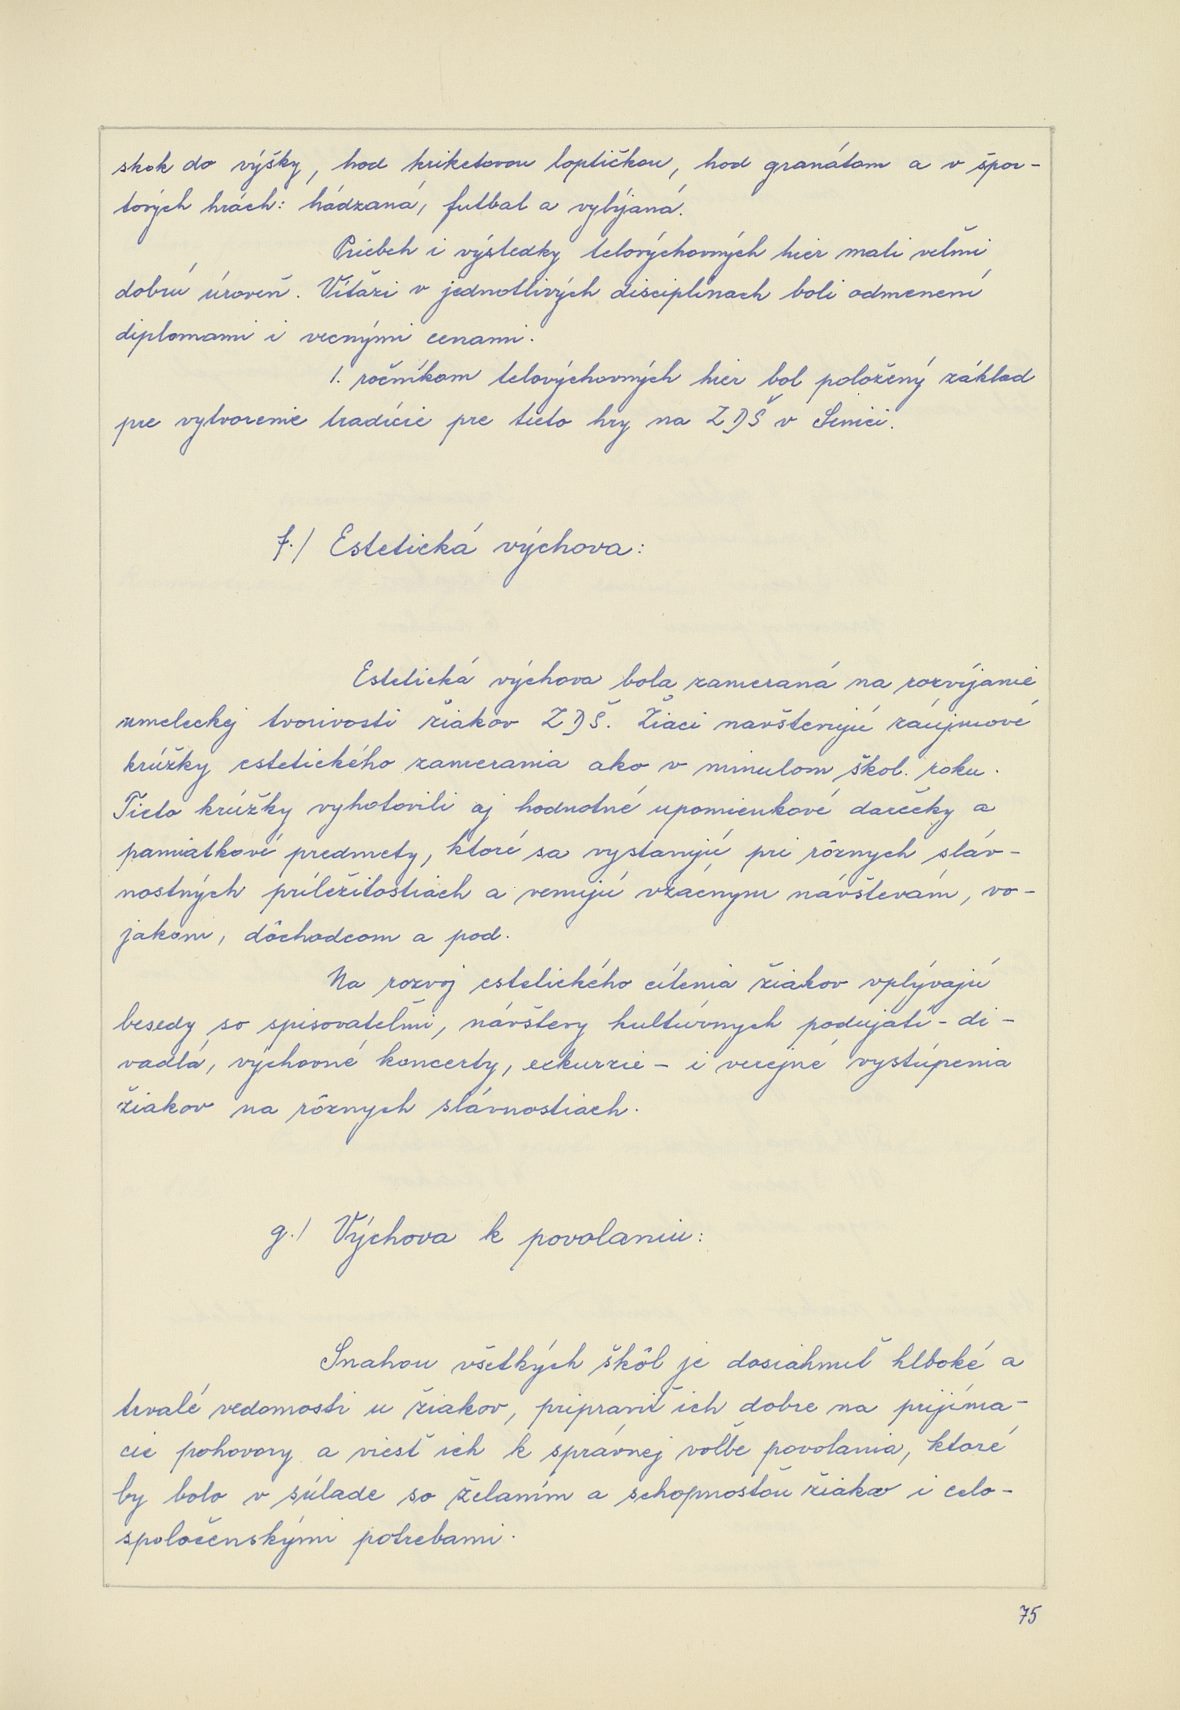 skok do výšky, hod kriketovou loptičkou, hod granátom a v špor-
tových hrách: hádzaná, futbal a vybíjaná.
Priebeh i výsledky telovýchovných hier mali veľmi
dobrú úroveň. Víťazi v jednotlivých disciplínach boli odmenení
diplomami i vecnými cenami.
1. ročníkom telovýchovných hier bol položený základ
pre vytvorenie tradície pre tieto hry na ZDŠ v Senici.
f./ Estetická výchova:
Estetická výchova bola zameraná na rozvíjanie
umeleckej tvorivosti žiakov ZDŠ. Žiaci navštevujú záujmové
krúžky estetického zamerania ako v minulom škol. roku.
Tieto krúžky vyhotovili aj hodnotné upomienkové darčeky a
pamiatkové predmety, ktoré sa vystavujú pri rôznych sláv-
nostných príležitostiach a venujú vzácnym návštevám, vo-
jakom, dôchodcom a pod.
Na rozvoj estetického cítenia žiakov vplývajú
besedy so spisovateľmi, návštevy kultúrnych podujatí - di-
vadlá, výchovné koncerty, exkurzie - i verejné vystúpenia
žiakov na rôznych slávnostiach.
g./ Výchova k povolaniu:
Snahou všetkých škôl je dosiahnuť hlboké a
trvalé vedomosti u žiakov, pripraviť ich dobre na prijíma-
cie pohovory a viesť ich k správnej voľbe povolania, ktoré
by bolo v súlade so želaním a schopnosťou žiakov i celo-
spoločenskými potrebami.
75